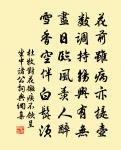 花前雖病亦提壺
數調持觴興有無
盡日臨風羨人醉
雪香空伴白髭須
杜牧對花微疾不飲呈
坐中諸公詞典網集